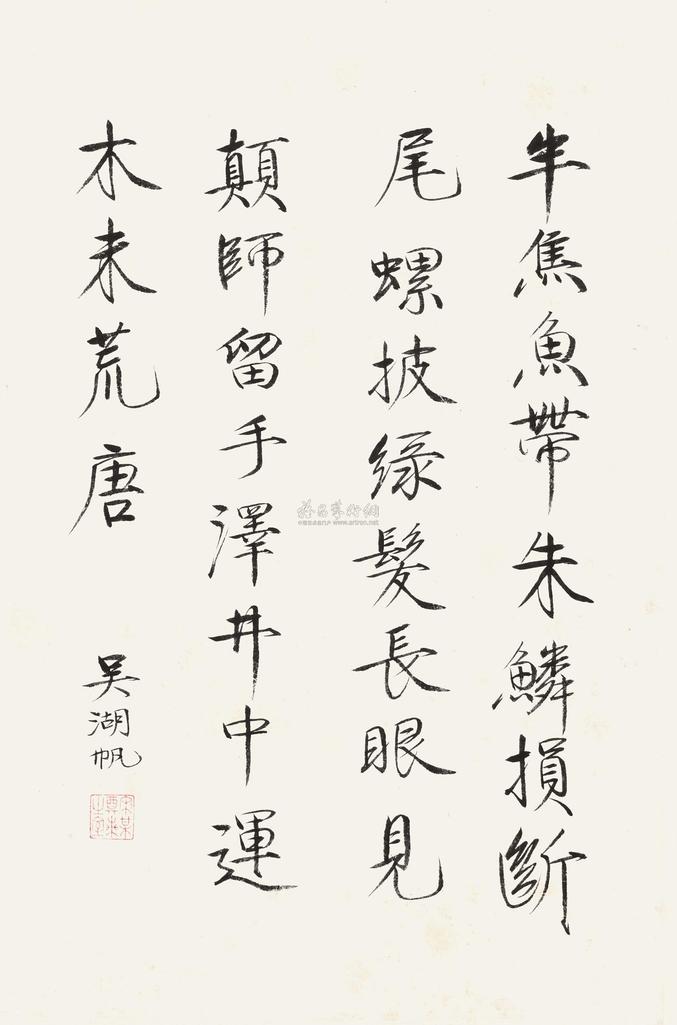 半焦魚帶朱鱗損斷
尾螺披綠髮長眼見
顛師留手澤井中運
木未荒唐
吳湖帆
雅昌藝術網
www.artron.net